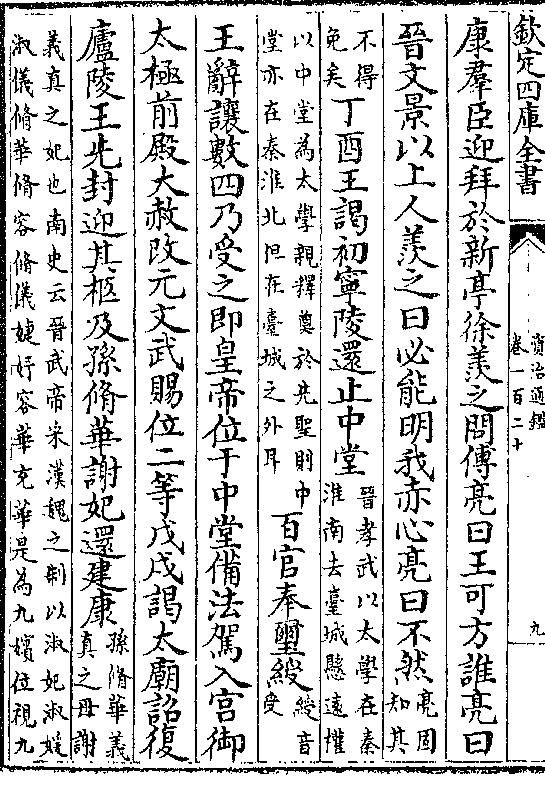 欽定四庫全書
資治通鑑
卷一百二十
九
康羣臣迎拜於新亭徐羨之問傅亮曰王可方誰亮曰
晉文景以上人羨之曰必能明我赤心亮曰不然亮固知其
不得免矣丁酉王謁初寧陵還止中堂晉孝武以太學在秦淮南去臺城懸遠權
以中堂為太學親釋奠於先聖則中堂亦在秦淮北但在臺城之外耳百官奉璽綬綬音受
王辭讓數四乃受之即皇帝位于中堂備法駕入宮御
太極前殿大赦改元文武賜位二等戊戌謁太廟詔復
廬陵王先封迎其柩及孫脩華謝妃還建康孫脩華義真之母謝
義真之妃也南史云晉武帝采漢魏之制以淑妃淑媛淑儀脩華脩容脩儀婕妤容華充華是為九嬪位視九